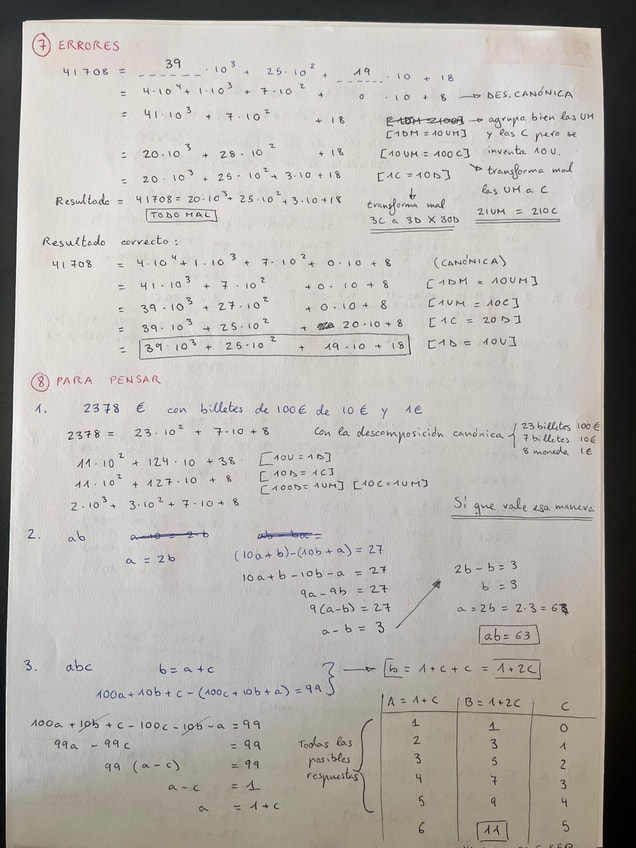 7 ERRORES
41708 = 39 · 10³ + 25 · 10² + 19 · 10 + 18
= 4 · 10⁴ + 1 · 10³ + 7 · 10² + 0 · 10 + 8 → DES. CANÓNICA
= 41 · 10³ + 7 · 10² + 18 [1DM = 10UM] → agrupa bien las UM y las C pero se inventa 10U.
= 20 · 10³ + 28 · 10² + 18 [10UM = 100C] → transforma mal las UM a C
= 20 · 10³ + 25 · 10² + 3 · 10 + 18 [1C = 10D] 21UM = 210C
Resultado = 41708 = 20 · 10³ + 25 · 10² + 3 · 10 + 18 transforma mal
TODO MAL 3C a 3D X 30D
Resultado correcto:
41708 = 4 · 10⁴ + 1 · 10³ + 7 · 10² + 0 · 10 + 8 (CANÓNICA)
= 41 · 10³ + 7 · 10² + 0 · 10 + 8 [1DM = 10UM]
= 39 · 10³ + 27 · 10² + 0 · 10 + 8 [1UM = 10C]
= 39 · 10³ + 25 · 10² + 20 · 10 + 8 [1C = 20D]
= 39 · 10³ + 25 · 10² + 19 · 10 + 18 [1D = 10U]
8 PARA PENSAR
1. 2378 € con billetes de 100€ de 10€ y 1€
2378 = 23 · 10² + 7 · 10 + 8 Con la descomposición canónica { 23 billetes 100€
7 billetes 10€
8 moneda 1€
11 · 10² + 124 · 10 + 38 [10U = 1D]
11 · 10² + 127 · 10 + 8 [10D = 1C]
[100D = 1UM] [10C = 1UM]
2 · 10³ + 3 · 10² + 7 · 10 + 8
Sí que vale esa manera
2. ab a · 10 = 2 · b ab - ba =
a = 2b (10a + b) - (10b + a) = 27
10a + b - 10b - a = 27 2b - b = 3
9a - 9b = 27 b = 3
9(a - b) = 27 a = 2b = 2 · 3 = 6
a - b = 3 ab = 63
3. abc b = a + c → b = 1 + c + c = 1 + 2c
100a + 10b + c - (100c + 10b + a) = 99
100a + 10b + c - 100c - 10b - a = 99
99a - 99c = 99
99 (a - c) = 99
a - c = 1
a = 1 + c
Todas las posibles respuestas
A = 1 + C B = 1 + 2C C
1 1 0
2 3 1
3 5 2
4 7 3
5 9 4
6 11 5